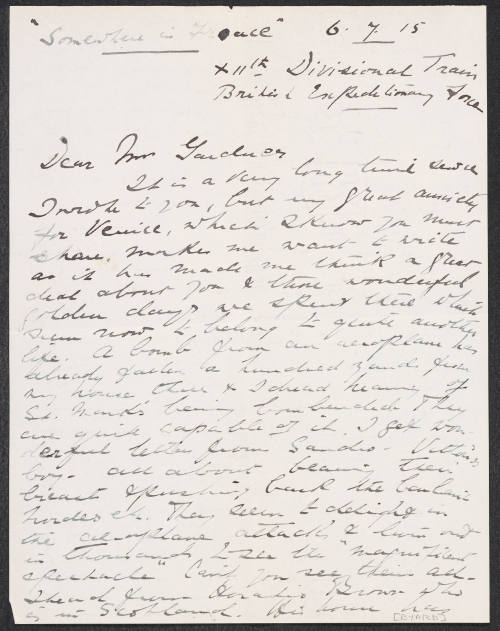 "Somewhere in France" 6.7.15
x 11th Divisional Train
British Expeditionary Force
Dear Mrs Gardner
It is a very long time since
I wrote to you, but my great anxiety
for Venice, which I know you must
share, makes me want to write
as it has made me think a great
deal about you & those wonderful
golden days we spent there which
seem now to belong to quite another
life. A bomb from an aeroplane has
already fallen a hundred yards from
my house there & I dread hearing of
St. Mark's being bombarded. They
are quite capable of it. I get won-
derful letters from Sandro - Vittorio's
boy - all about bearing their
breasts & pushing back the barbaric
hordes etc. They seem to delight in
the aeroplane attacks & turn out
in thousands to see the "magnificent
spectacle" Can't you see them all-
I heard from Horatio Brown who
is in Scotland. His house has
[BYARD]